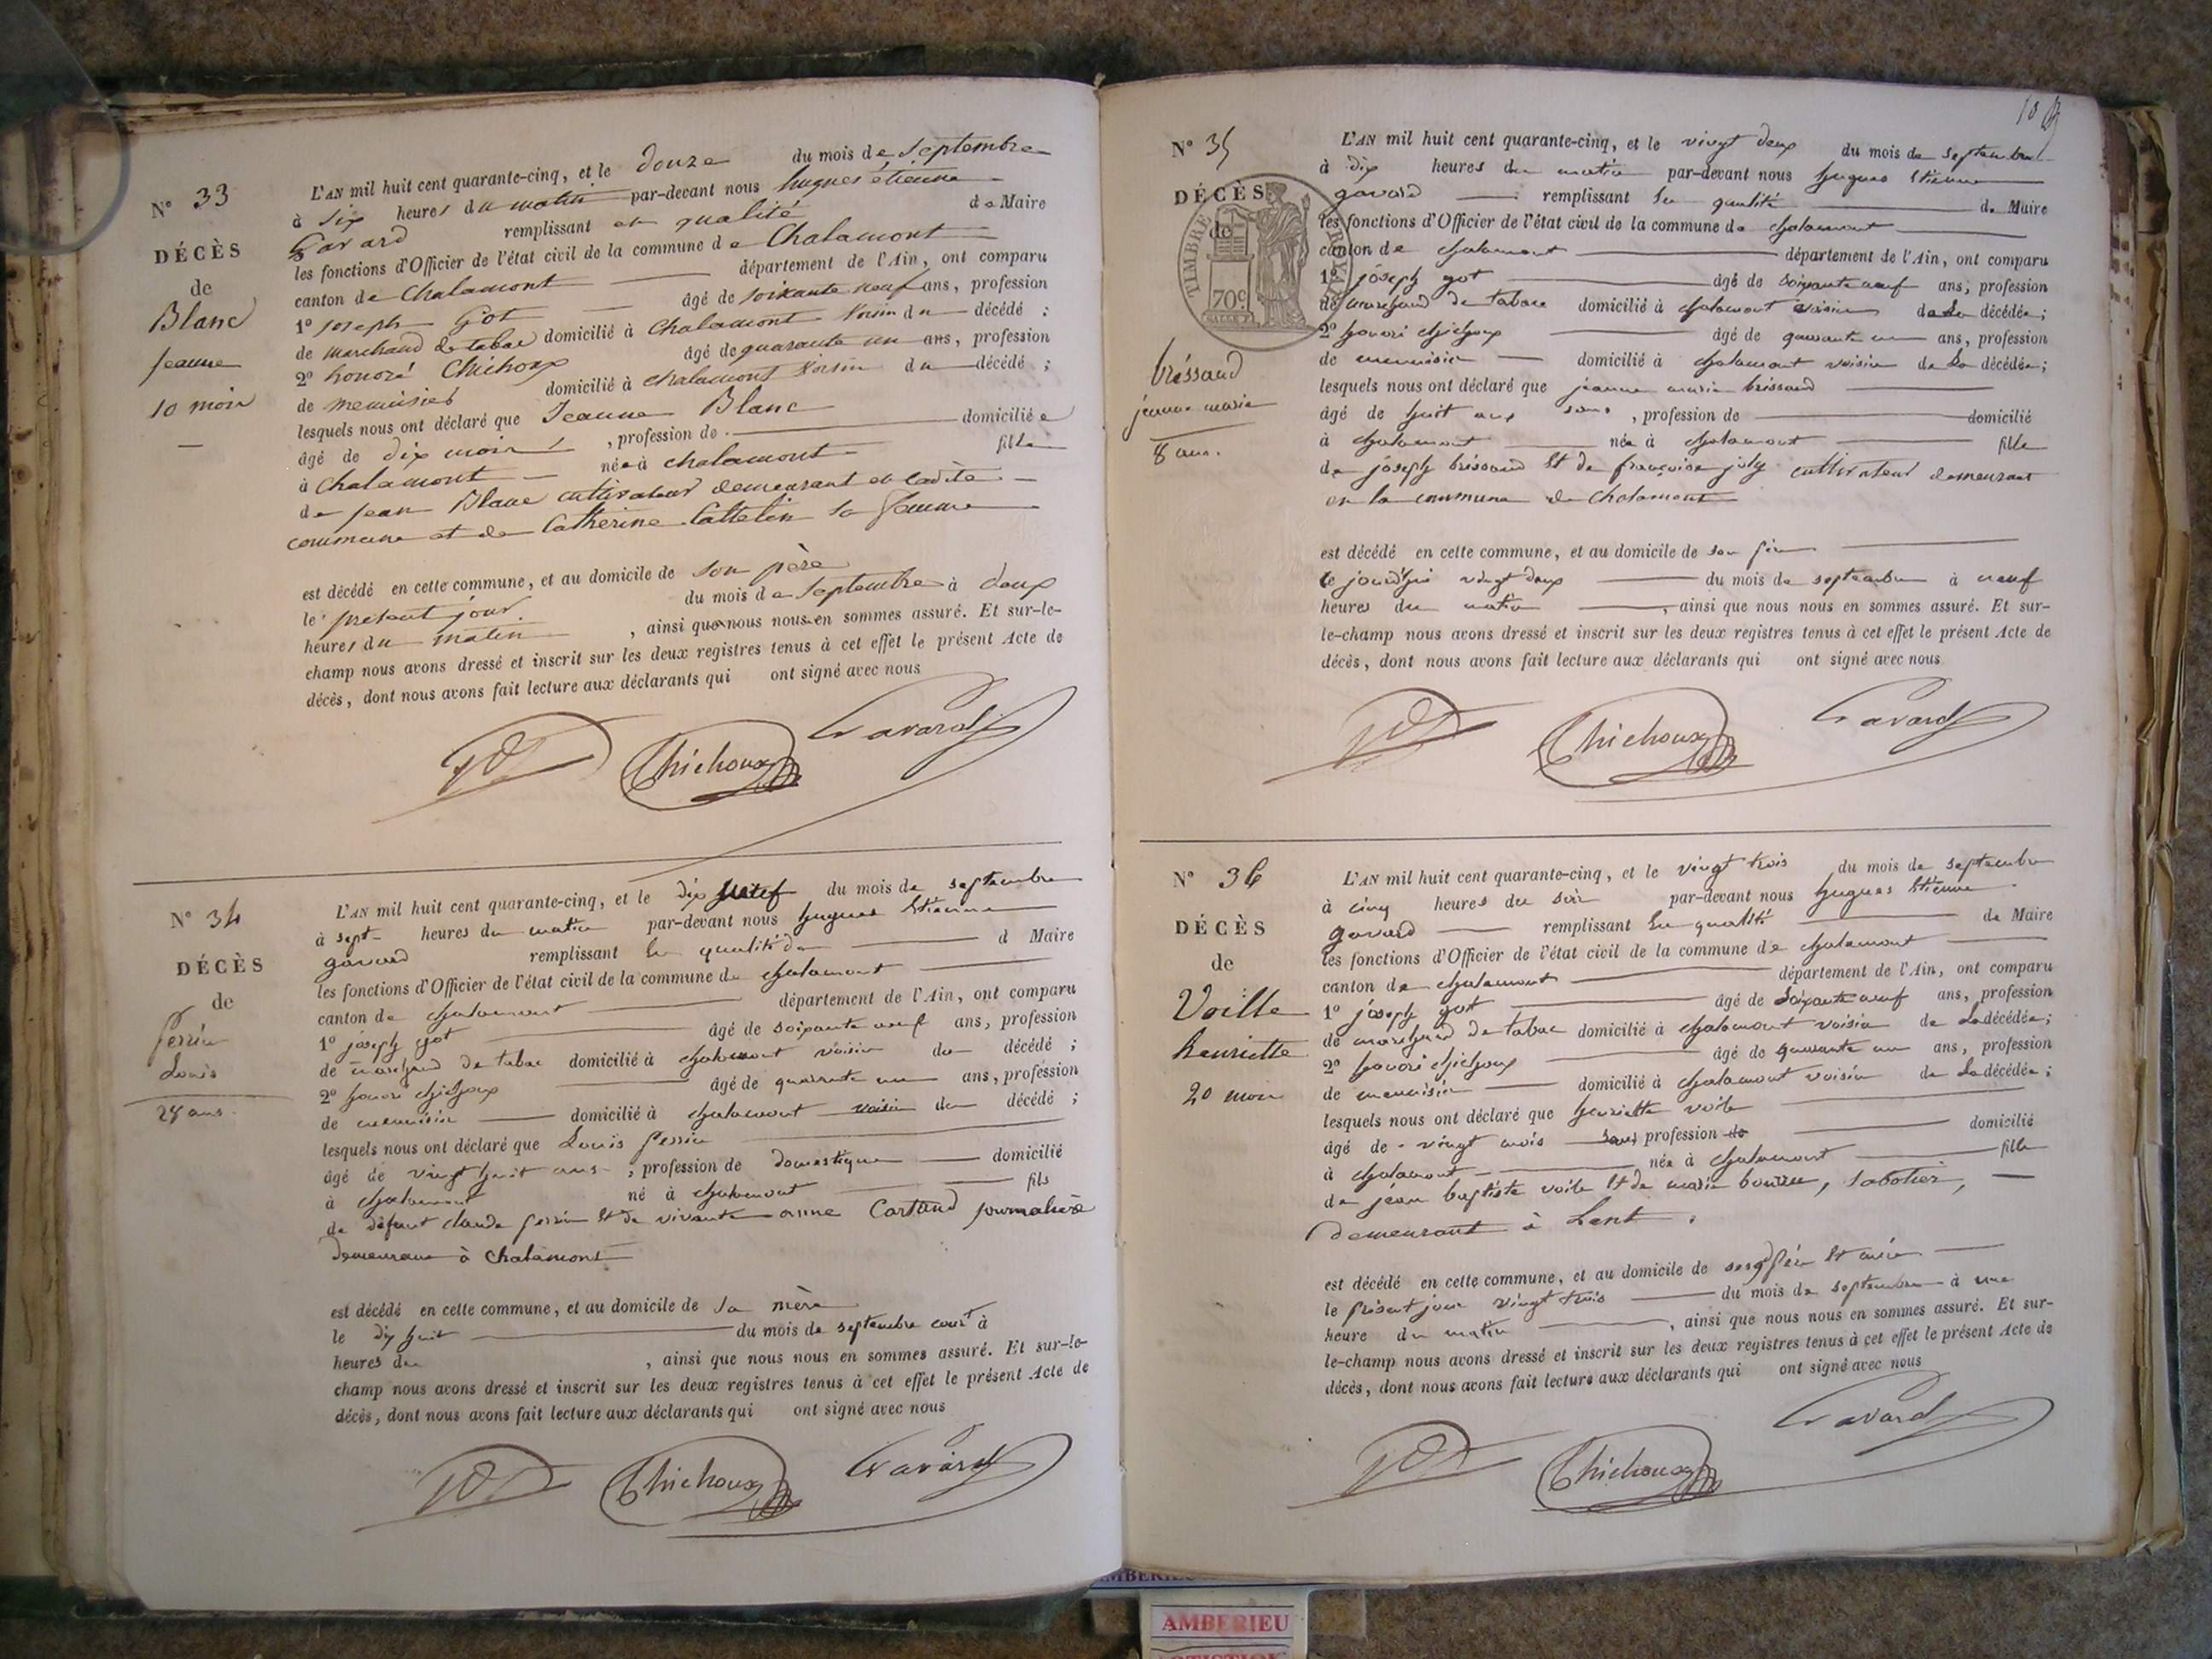 N° 33
DÉCÈS
de
Blanc
jeanne
10 mois
L'AN mil huit cent quarante-cinq, et le douze du mois de septembre
à six heures du matin par-devant nous hugues étienne
Gavard remplissant en qualité de Maire
les fonctions d'Officier de l'état civil de la commune de Chalamont
canton de Chalamont département de l'Ain, ont comparu
1° joseph Got âgé de soixante neuf ans, profession
de marchand de tabac domicilié à Chalamont voisin du décédé ;
2° honoré Chichoux âgé de quarante un ans, profession
de menuisier domicilié à chalamont voisin du décédé ;
lesquels nous ont déclaré que Jeanne Blanc
âgé de dix mois , profession de domiciliée
à Chalamont née à chalamont fille
de jean Blanc cultivateur demeurant en ladite
commune et de Catherine Cattelin sa femme
est décédé en cette commune, et au domicile de son père
le présent jour du mois de septembre à deux
heures du matin , ainsi que nous nous en sommes assuré. Et sur-le-
champ nous avons dressé et inscrit sur les deux registres tenus à cet effet le présent Acte de
décès, dont nous avons fait lecture aux déclarants qui ont signé avec nous
Chichoux Gavard
N° 34
DÉCÈS
de
Perrin
Louis
28 ans.
L'AN mil huit cent quarante-cinq, et le dix neuf du mois de septembre
à sept heures du matin par-devant nous hugues Etienne
gavard remplissant En qualité de d Maire
les fonctions d'Officier de l'état civil de la commune de chalamont
canton de chalamont département de l'Ain, ont comparu
1° joseph got âgé de soixante neuf ans, profession
de marchand de tabac domicilié à chalamont voisin du décédé ;
2° honoré chichoux âgé de quarante un ans, profession
de menuisier domicilié à chalamont voisin du décédé ;
lesquels nous ont déclaré que Louis perrin
âgé de vingt huit ans , profession de domestique domicilié
à chalamont né à chalamont fils
de défunt claude perrin Et de vivante anne Cartand journalière
demeurant à Chalamont
est décédé en cette commune, et au domicile de sa mère
le dix huit du mois de septembre court à
heures du , ainsi que nous nous en sommes assuré. Et sur-le-
champ nous avons dressé et inscrit sur les deux registres tenus à cet effet le présent Acte de
décès, dont nous avons fait lecture aux déclarants qui ont signé avec nous
Chichoux Gavard
N° 35
DÉCÈS
de
TIMBRE ROYAL
70c
bréssand
jeanne marie
8 ans.
L'AN mil huit cent quarante-cinq, et le vingt deux du mois de septembre
à dix heures du matin par-devant nous hugues Etienne
gavard remplissant En qualité de Maire
les fonctions d'Officier de l'état civil de la commune de chalamont
canton de chalamont département de l'Ain, ont comparu
1° joseph got âgé de soixante neuf ans, profession
de marchand de tabac domicilié à chalamont voisin de la décédée;
2° honoré chichoux âgé de quarante un ans, profession
de menuisier domicilié à chalamont voisin de la décédée;
lesquels nous ont déclaré que jeanne marie bréssand
âgé de huit ans sans , profession de domicilié
à chalamont née à chalamont fille
de joseph bréssand Et de françoise joly cultivateur demeurant
en la commune de Chalamont
est décédé en cette commune, et au domicile de son père
le jourd'hui vingt deux du mois de septembre à neuf
heures du matin , ainsi que nous nous en sommes assuré. Et sur-
le-champ nous avons dressé et inscrit sur les deux registres tenus à cet effet le présent Acte de
décès, dont nous avons fait lecture aux déclarants qui ont signé avec nous
Chichoux Gavard
N° 36
DÉCÈS
de
Voille
henriette
20 mois
L'AN mil huit cent quarante-cinq, et le vingt trois du mois de septembre
à cinq heures du soir par-devant nous hugues Etienne
gavard remplissant En qualité de Maire
les fonctions d'Officier de l'état civil de la commune de chalamont
canton de chalamont département de l'Ain, ont comparu
1° joseph got âgé de soixante neuf ans, profession
de marchand de tabac domicilié à chalamont voisin de la décédée;
2° honoré chichoux âgé de quarante un ans, profession
de menuisier domicilié à chalamont voisin de la décédée;
lesquels nous ont déclaré que henriette voile
âgé de vingt mois sans profession de domicilié
à chalamont née à chalamont fille
de jean baptiste voile Et de marie , sabotier,
demeurant à Lent.
est décédé en cette commune, et au domicile de ses père Et mère
le présent jour vingt trois du mois de septembre à une
heure du matin , ainsi que nous nous en sommes assuré. Et sur-
le-champ nous avons dressé et inscrit sur les deux registres tenus à cet effet le présent Acte de
décès, dont nous avons fait lecture aux déclarants qui ont signé avec nous
Chichoux Gavard
AMBERIEU